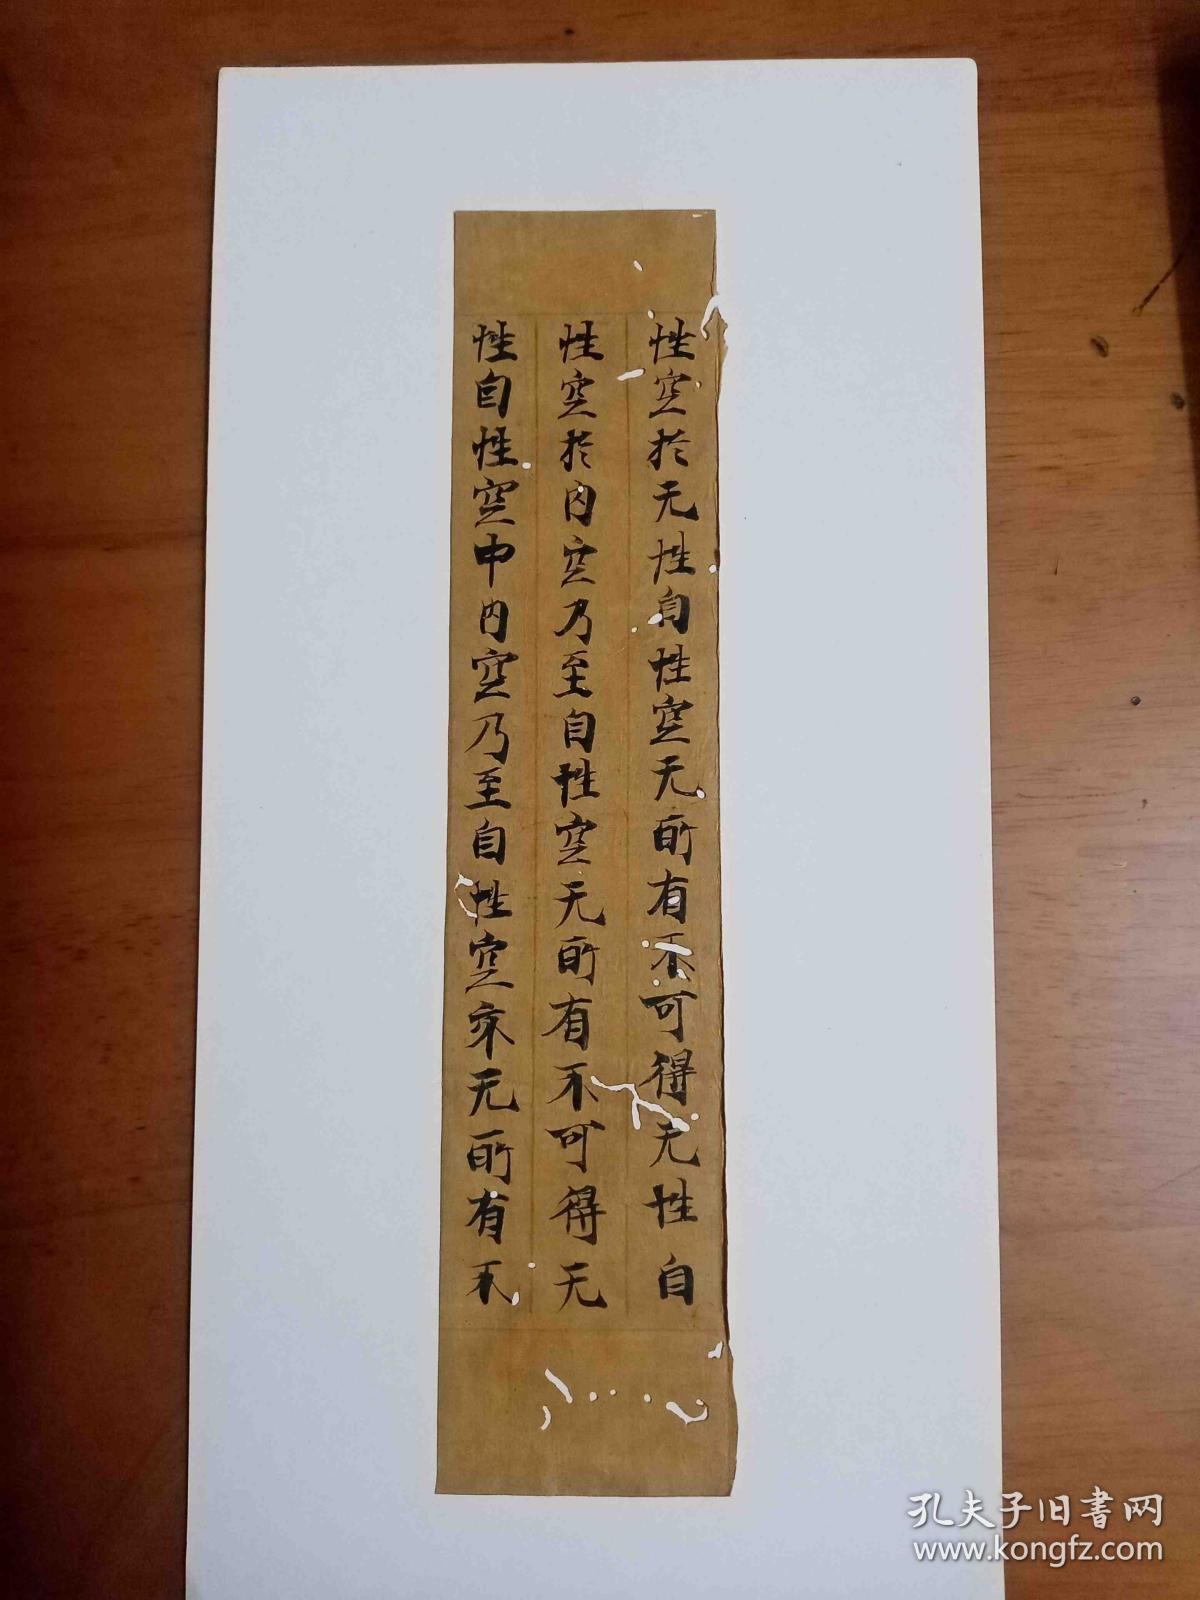 性空於无性自性空无所有不可得无性自
性空於内空乃至自性空无所有不可得无
性自性空中内空乃至自性空亦无所有不
孔夫子旧书网
www.kongfz.com